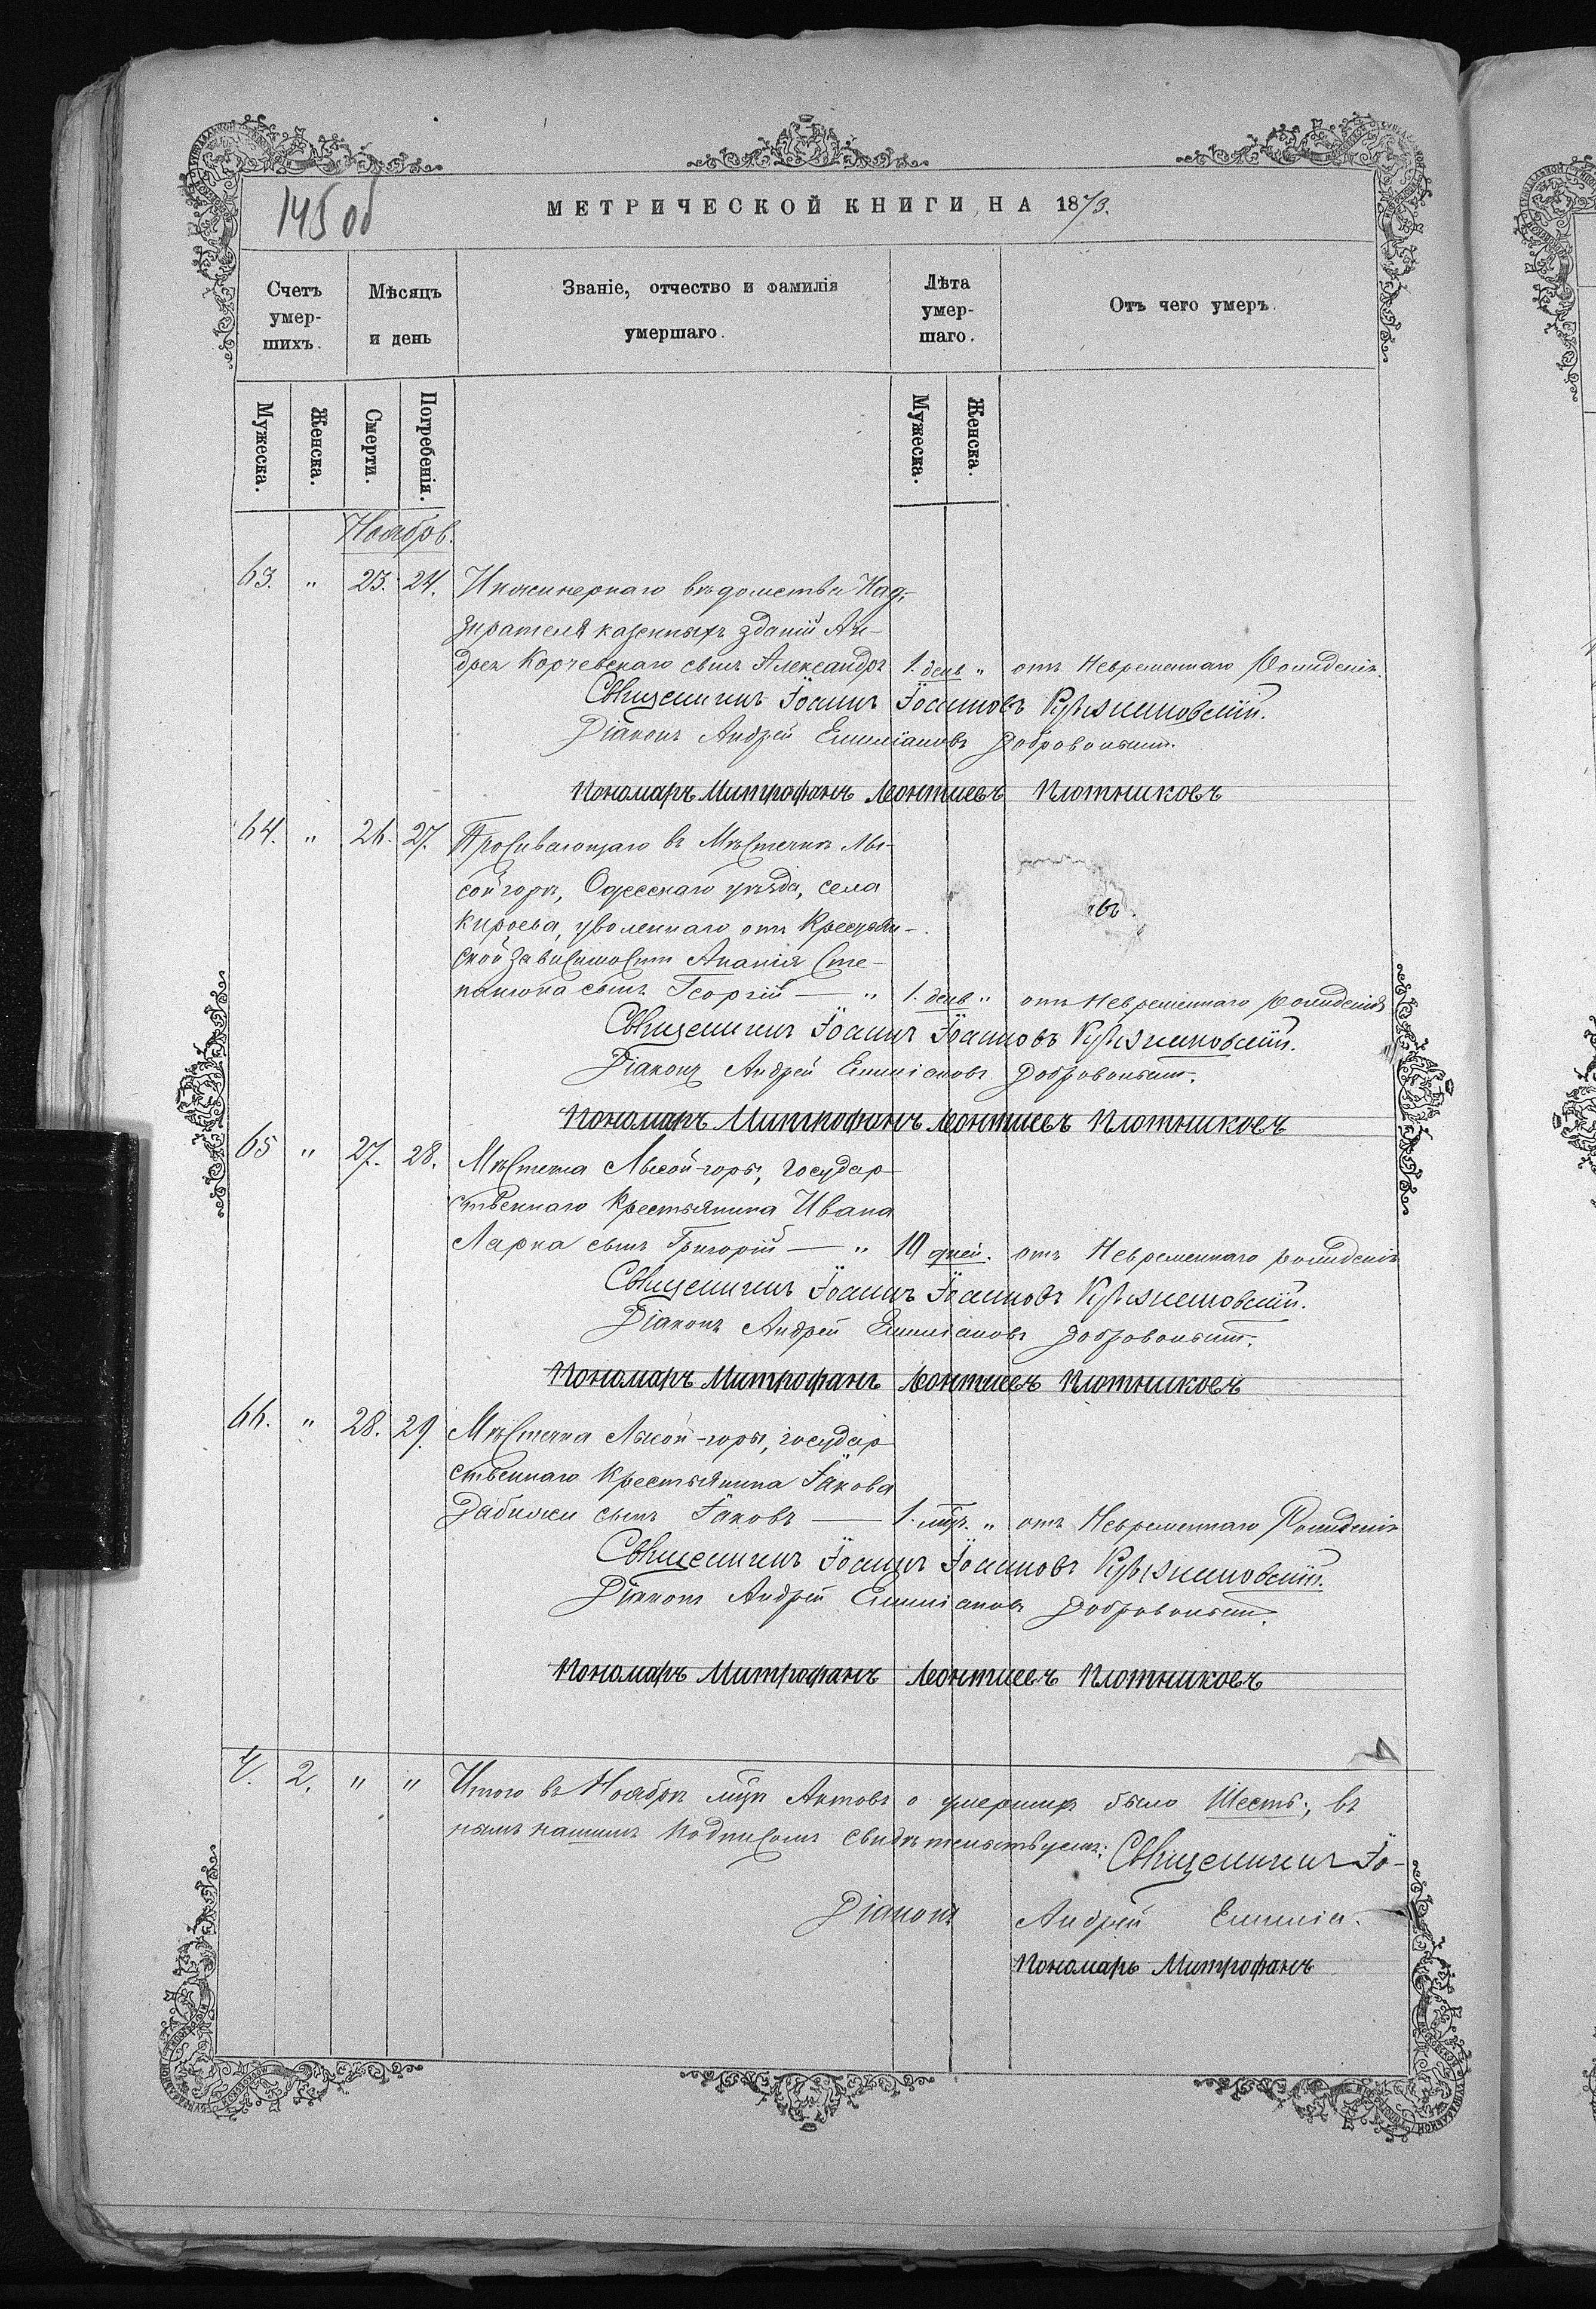 145 об
МЕТРИЧЕСКОЙ КНИГИ, НА 1873.
Счетъ умер-шихъ.
Мѣсяцъ и день
Званіе, отчество и фамилія умершаго.
Лѣта умер-шаго.
Отъ чего умеръ.
Мужеска.
Женска.
Смерти.
Погребенія.
Мужеска.
Женска.
Ноябрь.
63. " 23. 24. Инженернаго вѣдомства Над-
зирателя казенныхъ зданій Ан-
дрея Корчевскаго сынъ Александръ 1. день " отъ Невременнаго Рожденія.
Священникъ Іоаннъ Іоанновъ
Діаконъ Андрей Емиліановъ
Пономарь Митрофанъ Леонтиевъ Плотниковъ
64. " 26. 27. Проживающаго въ Мѣстечкѣ Лы-
сойгорѣ, Одесскаго уѣзда, села
уволеннаго отъ Крестьян-
ской зависимости Ананія Сте-
панова сынъ Георгій — " 1. день " отъ Невременнаго Рожденія
Священникъ Іоаннъ Іоанновъ
Діаконъ Андрей Емиліановъ
Пономарь Митрофанъ Леонтиевъ Плотниковъ
65 " 27. 28. Мѣстечка Лысой-горы, государ-
ственнаго Крестьянина Ивана
Ларка сынъ Григорій — " 10 дней. отъ Невременнаго рожденія
Священникъ Іоаннъ Іоанновъ
Діаконъ Андрей Емиліановъ
Пономарь Митрофанъ Леонтиевъ Плотниковъ
66. " 28. 29. Мѣстечка Лысой-горы, государ-
ственнаго Крестьянина Іакова
Дабижи сынъ Іаковъ — 1. мцъ. " отъ Невременнаго Рожденія
Священникъ Іоаннъ Іоанновъ
Діаконъ Андрей Емиліановъ
Пономарь Митрофанъ Леонтиевъ Плотниковъ
4. 2. " " Итого въ Ноябрѣ мцѣ Актовъ о умершихъ было Шесть; въ
нашимъ подписомъ свидѣтельствуемъ: Священникъ Іо-
Діаконъ Андрей Емиліа-
Пономарь Митрофанъ